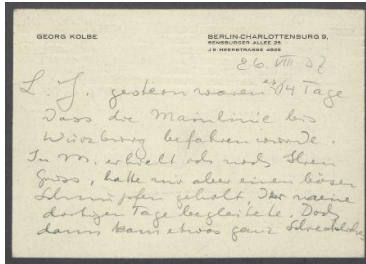 GEORG KOLBE
BERLIN-CHARLOTTENBURG 9,
SENSBURGER ALLEE 25
J 9 HEERSTRASSE 4825
26. VIII 32
L. J. gestern waren es 14 Tage
dass die Mainlinie bis
Würzburg befahren wurde.
In M. erhielt ich noch Ihren
Gruss, hatte mir aber einen bösen
Schnupfen geholt, der meine
dortigen Tage begleitete. Doch
dann kam etwas ganz Schreckliches